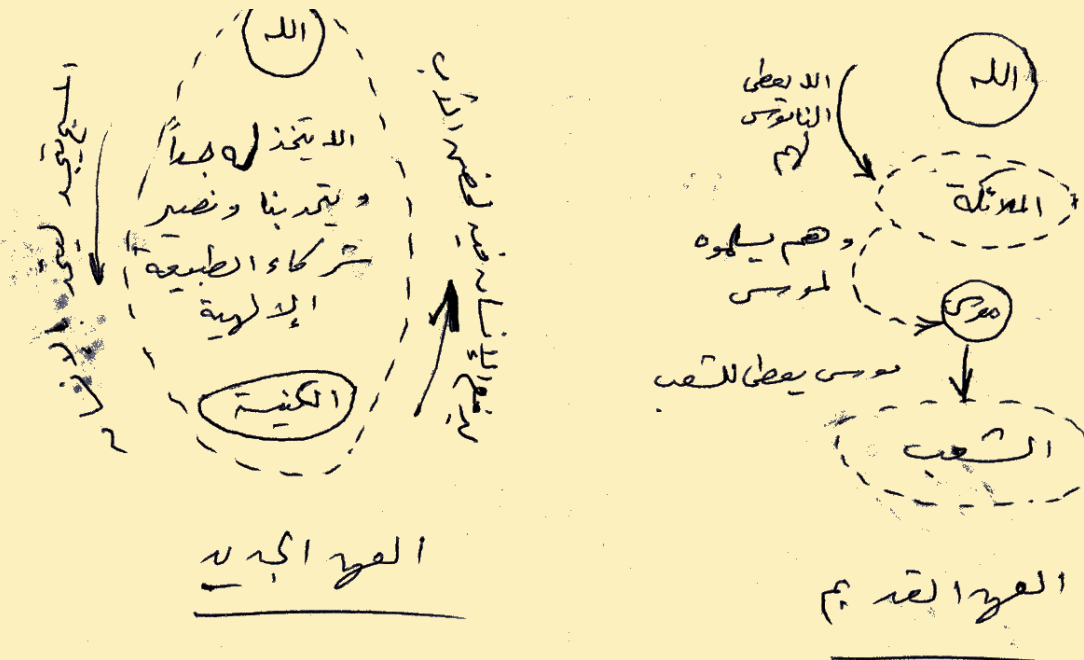 الله
الله يعطى
الناموس
لهم
الملائكة
وهم يسلموه
لموسى
موسى
موسى يعطى للشعب
الشعب
العهد القديم
الله
الله يتخذ له جسداً
ويتحد بنا ونصير
شركاء الطبيعة
الإلهية
الكنيسة
المسيح يتجسد ليتحد بالإنسان
العهد الجديد